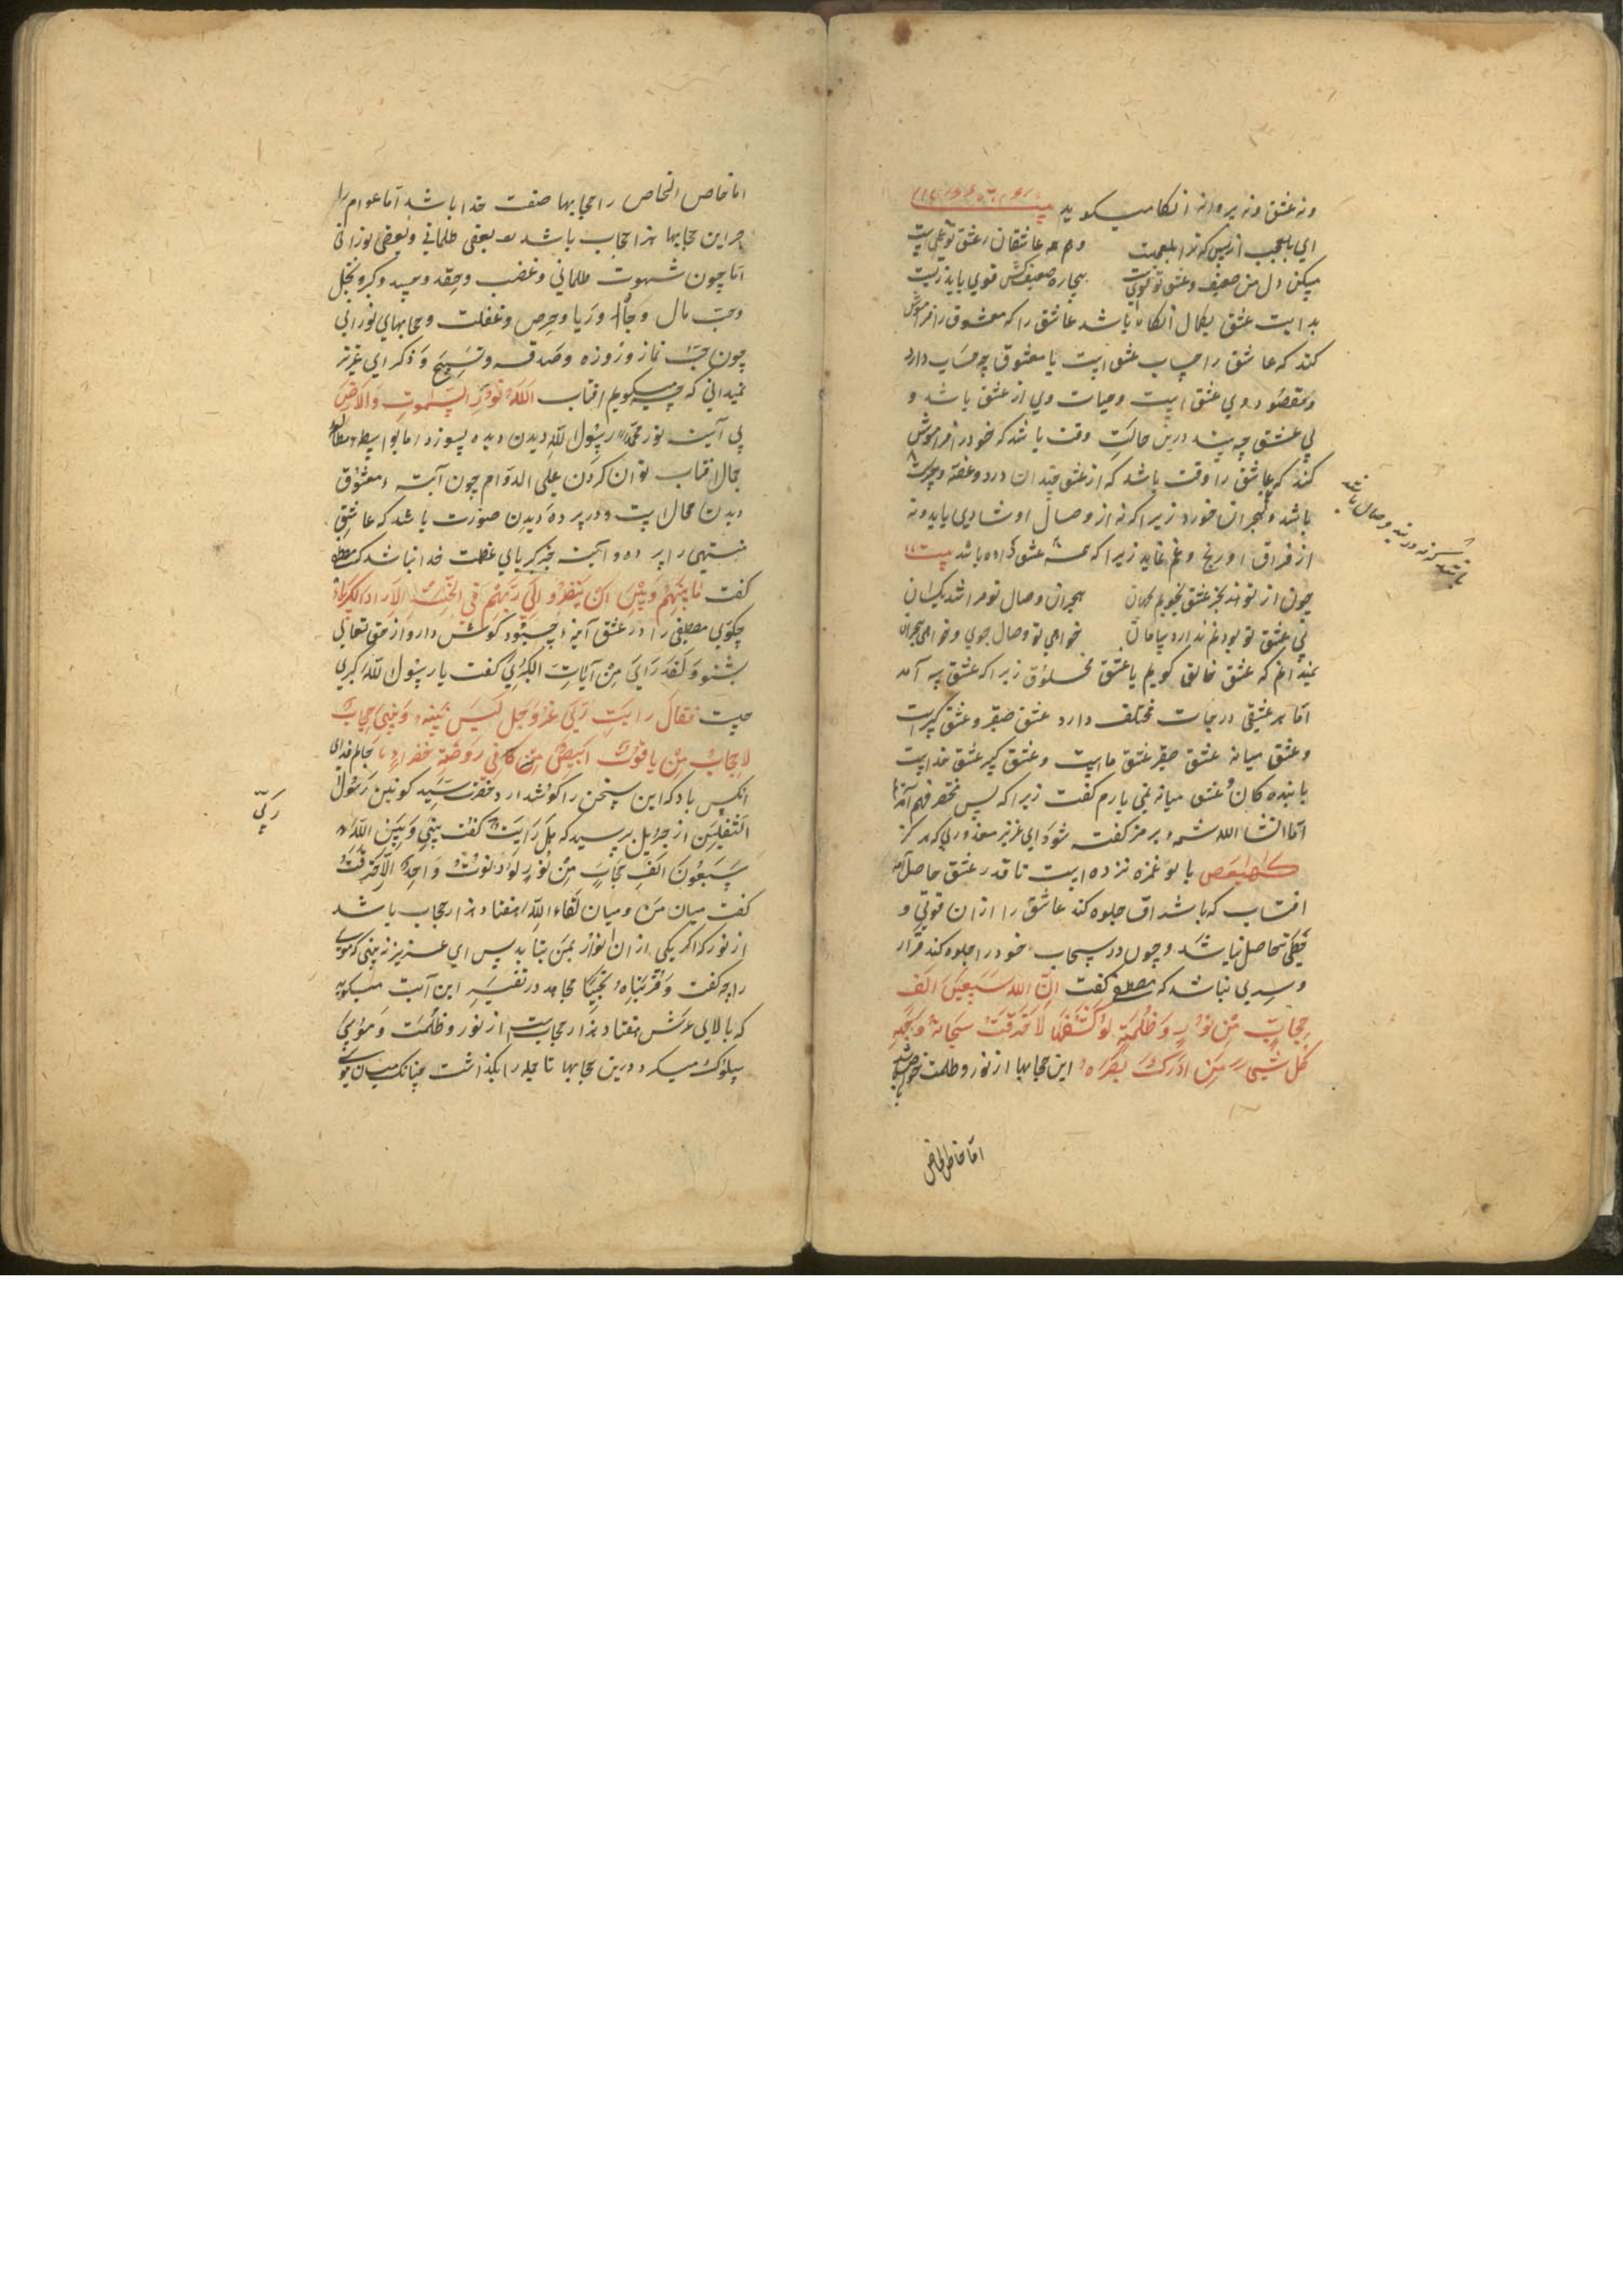 ونه عشق ونه پروانه انکا میکوید بیت
ای بلعجب از بس که ترا بلعجبیت    وهم همه عاشقان زعشق تو
مسکین دل من ضعیف وعشق تو قویست    بیچاره ضعیف کش قوی باید زیست
بدایت عشق بکمال انکاه باشد عاشق را که معشوق را فراموش
کند که عاشق را حساب عشق است با معشوق چه حساب دارد
ومقصود وی عشق است وحیات وی از عشق باشد و
بی عشق چه بیند درین حالت وقت باشد که خود را فراموش
کند که عاشق را وقت باشد که از عشق چندان درد وغصه وحیرت
باشد وهجران خورد زیرا که نه از وصال او شادی یابد ونه
از فراق او رنج وغم نماید زیرا که همه عشق داده باشد بیت
چون از تو نه بجز عشق بجویم بجهان    هجران ووصال تو مرا شد یکسان
بی عشق تو بودنم ندارد سامان    خواهی تو وصال جوی وخواهی هجران
نمیدانم که عشق خالق کویم یا عشق مخلوق زیرا که عشق سه آمد
اما هر عشقی درجات مختلف دارد عشق صغیر وعشق کبیرست
وعشق میانه عشق صغیر عشق ماست وعشق کبیر عشق خداست
با بنده کان وعشق میانه نمی یارم کفت زیرا که بس مختصر فهم آمده
اما انشا الله شمه برمز کفته شود ای عزیز معذوری که هرکز
کهیعص با تو غمزه نزده است تا قدر عشق حاصل
افتاب که باشد اف جلوه کند عاشق را ازان قوتی و
حظی حاصل نیاشد وچون در سحاب خود را جلوه کند قرار
وسیری نباشد که مصطفی کفت ان الله سبعین الف
حجاب من نور وظلمة لو کشفها لاحرقت سبحات وجهه
کل شیء من ادرک بصره این حجابها از نور وظلمت خواص
اما خاص الخاص
اما خاص الخاص را حجابها صفت خدا باشد اما عوام را
جز این حجابها هزار حجاب باشد بعضی ظلمانی وبعضی نورانی
اما چون شهوت ظلمانی وغضب وحقد وحسد وکبر وبخل
وحب مال وجاه وریا وحرص وغفلت وحجابهای نورانی
چون نماز وروزه وصدقه وتسبیح وذکر ای عزیز
نمیدانی که چه میکویم افتاب الله نور السموت والارض
بی آینه نور محمد رسول لله دیدن دیده بسوزد اما بواسطه مطالعه
جمال افتاب توان کردن علی الدوام چون آینه ومعشوق
دیدن محال است ودر پرده دیدن ضرورت باشد که عاشق
منتهی را پرده وآینه جز کبریای عظمت خدا نباشد که مصطفی
کفت ما بینهم وبین ان ینظروا الی ربهم فی الجنة الا رداء الکبریاء
چکویی مصطفی را در عشق آینه چه بود کوش دار واز حق تعالی
بشنو ولقد رای من آیات الکبری کفت یا رسول لله کبری
چیست فقال رایت ربی عز وجل لیس بینه وبینی حجاب
لا حجاب من یاقوت ابیض فی روضة خضراء جانم فدای
انکس باد که این سخن را کوش دارد حضرت سید کونین رسول
الثقلین از جبرئیل پرسید که هل رایت ربی کفت بینی وبین الله
سبعون الف حجاب من نور لو دنوت واحدا لاحترقت
کفت میان من ومیان لقاء الله هفتاد هزار حجاب باشد
از نور که اگر یکی ازان انوار بمن بتابد بس ای عزیز نه بینی که موسی
را چه کفت وقربناه نجیا مجاهد در تفسیر این آیت میکوید
که بالای عرش هفتاد هزار حجابست از نور وظلمت وموسی
سلوک میکرد درین حجابها تا جمله را بکذاشت چنانک میان موسی